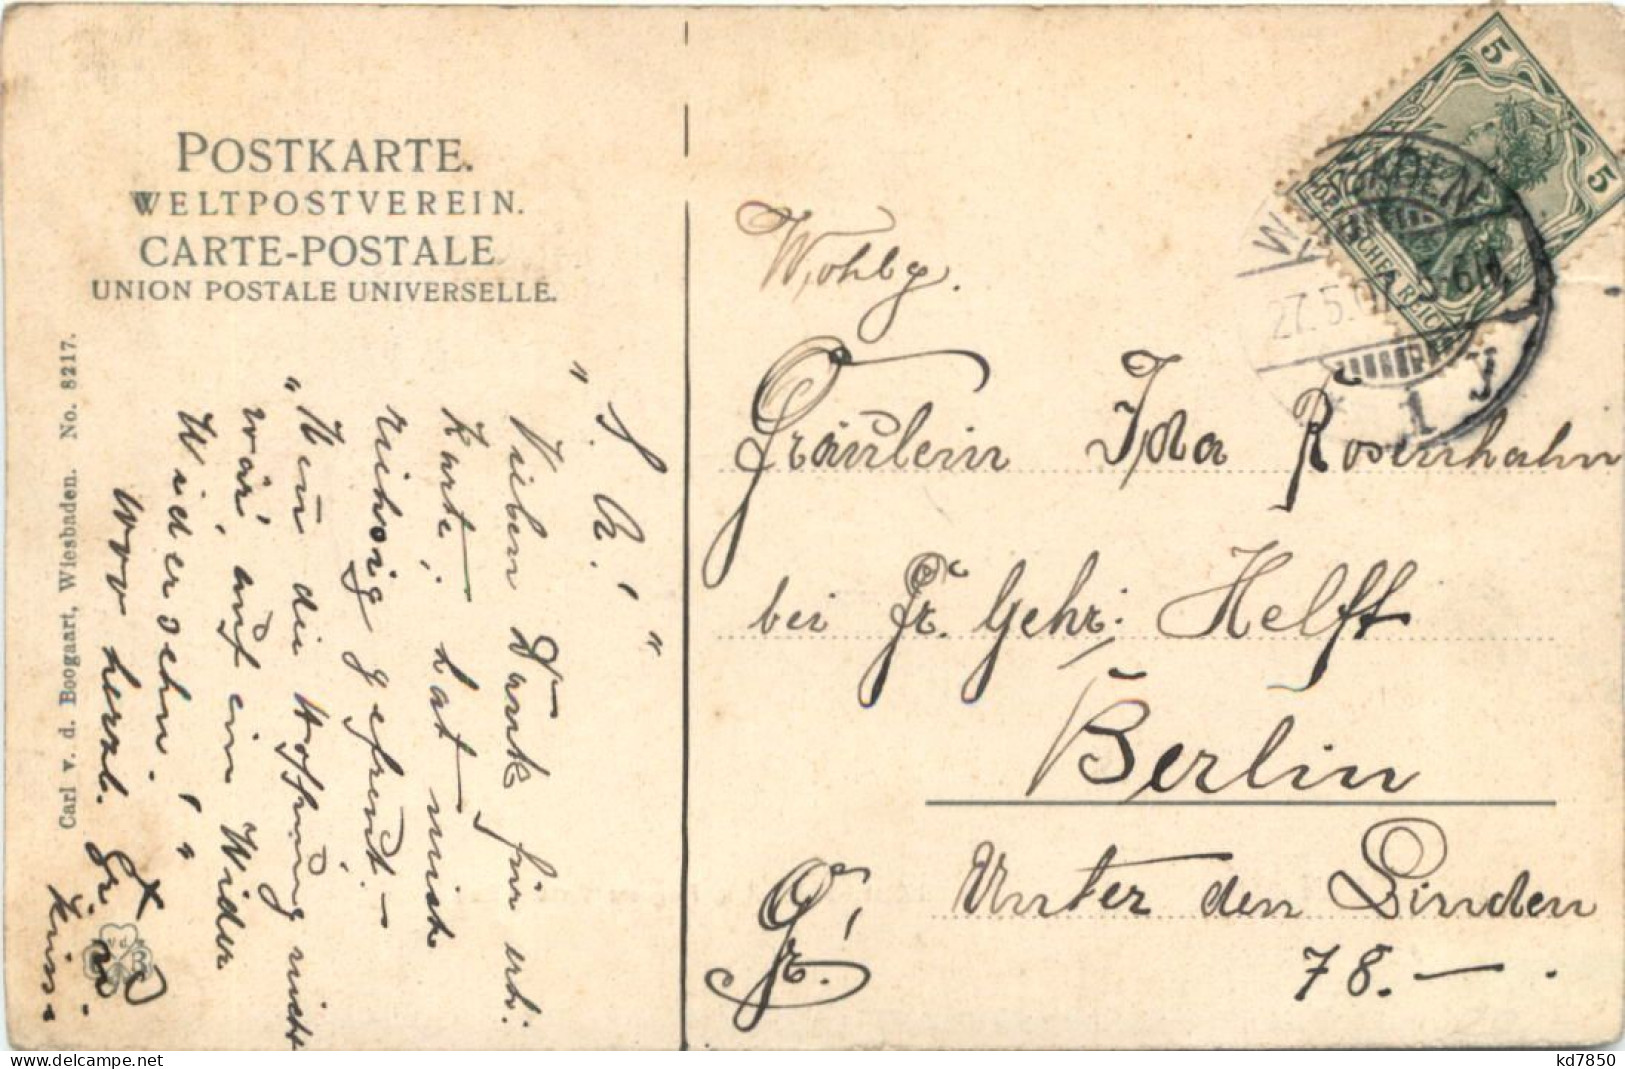 POSTKARTE.
WELTPOSTVEREIN.
CARTE-POSTALE
UNION POSTALE UNIVERSELLE.
Carl v. d. Boogaart, Wiesbaden. No. 8217.
„ S. A! "
Vielen Dank für erh:
Karte; hat mich
gefreut. —
„Wenn die Hoffnung nicht
wär', auf ein Wieder
Wiedersehn! "
herzl. Gr. u.
5
5
DEUTSCHES REICH
27.5.0
Wohlg.
Fräulein Ida Rosenhahn
bei Fr. Gehr: Helft
Berlin
Unter den Linden
78. — .
kd7850